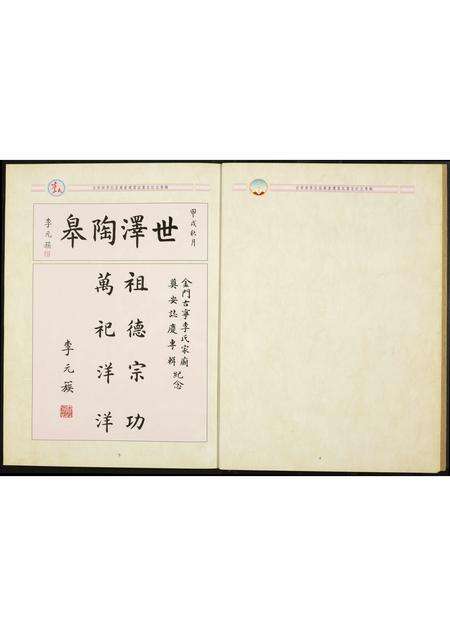 甲戌秋月
世澤陶皋
李元簇
金門古寧李氏家廟
奠安誌慶專輯紀念
祖德宗功
萬祀洋洋
李元簇